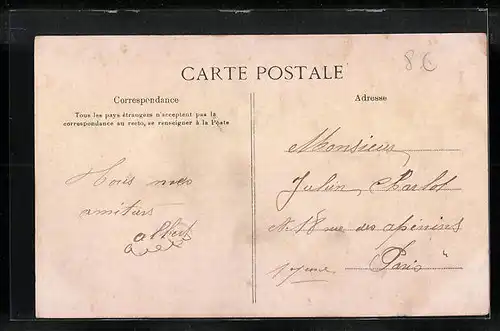 8€
CARTE POSTALE
Correspondance
Tous les pays étrangers n'acceptent pas la
correspondance au recto, se renseigner à la Poste
mes
amitiers
albert
Adresse
Monsieur
Julien Charlot
N 18 rue des apenines
Paris